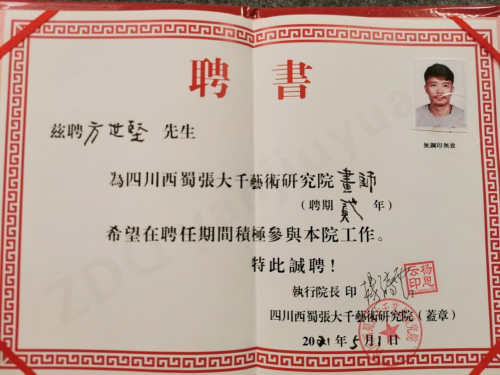 聘書
茲聘方世堅 先生
無鋼印無效
為四川西蜀張大千藝術研究院畫師
(聘期 貳 年)
希望在聘任期間積極參與本院工作。
特此誠聘!
執行院長 印
四川西蜀張大千藝術研究院(蓋章)
2021年5月1日